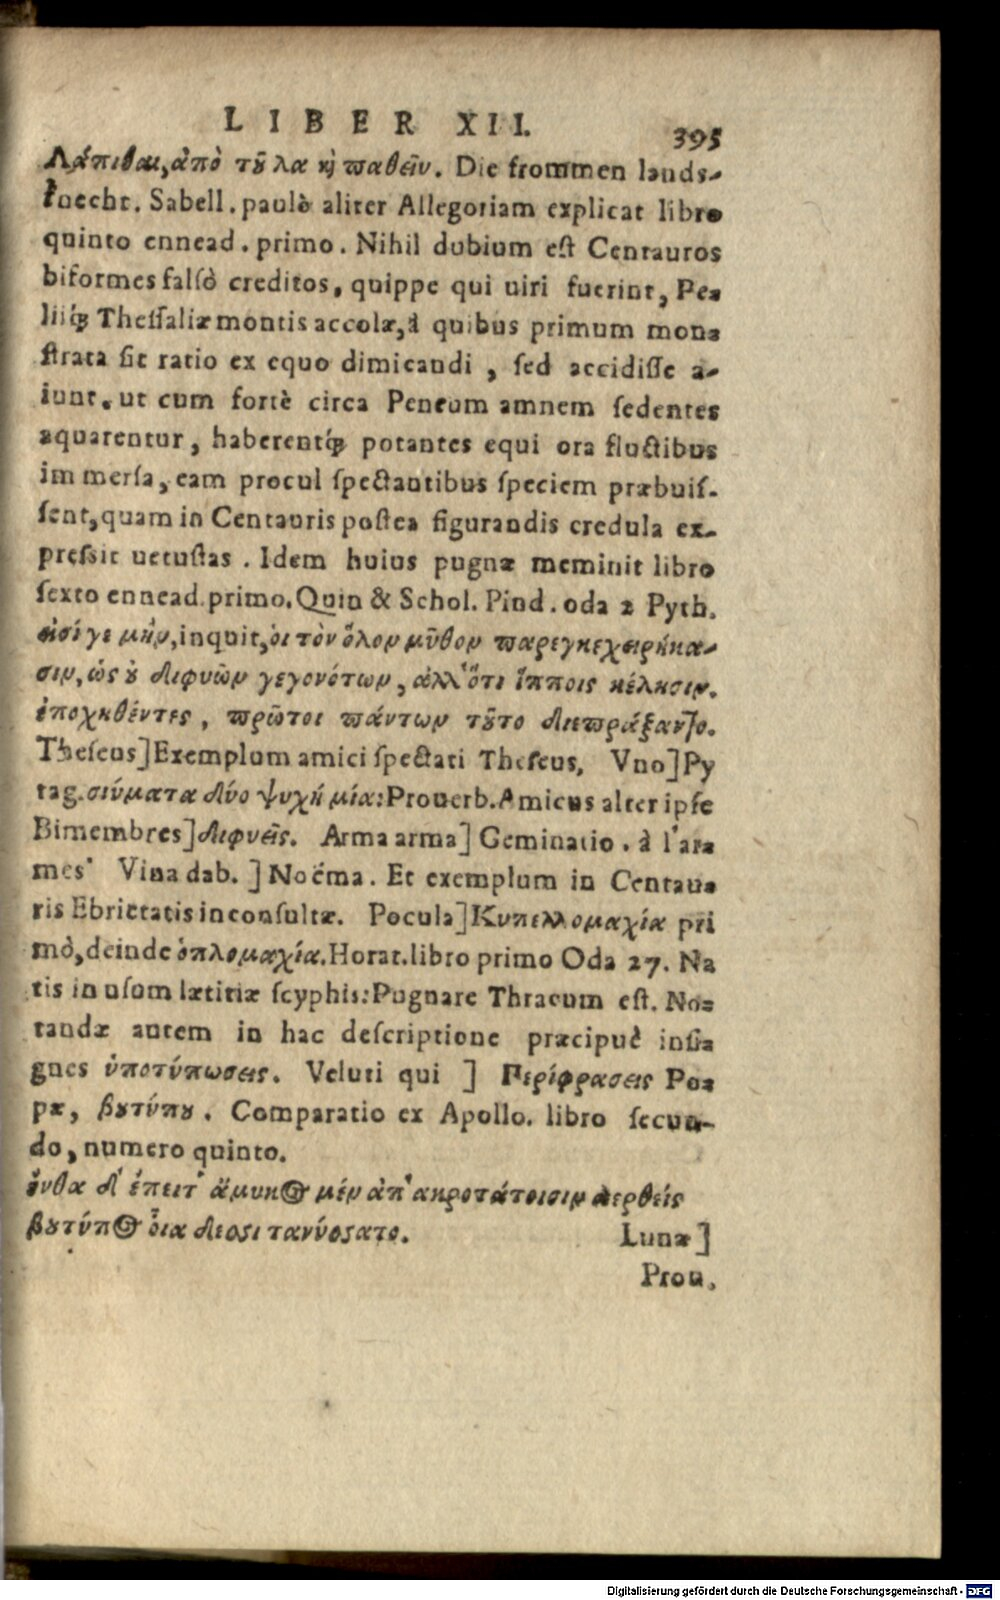 LIBER XII. 395
Λάπιθαι, ἀπὸ τοῦ λα καὶ παθεῖν. Die frommen lands-
knecht. Sabell. paulò aliter Allegoriam explicat libro
quinto ennead. primo. Nihil dubium est Centauros
biformes falsò creditos, quippe qui uiri fuerint, Pe-
liiq; Thessaliæ montis accolæ, à quibus primum mon-
strata sit ratio ex equo dimicandi, sed accidisse a-
iunt. ut cum fortè circa Peneum amnem sedentes
aquarentur, haberentq; potantes equi ora fluctibus
immersa, eam procul spectantibus speciem præbuis-
sent, quam in Centauris postea figurandis credula ex-
pressit uetustas. Idem huius pugnæ meminit libro
sexto ennead. primo. Quin & Schol. Pind. oda 2 Pyth.
εἰσί γε μὴν, inquit, οἱ τὸν ὅλον μῦθον παρεγκεχειρήκα-
σιν, ὡς οὐ διφυῶν γεγονότων, ἀλλ' ὅτι ἵπποις κέλησιν.
ἐποχηθέντες, πρῶτοι πάντων τοῦτο διεπράξαντο.
Theseus] Exemplum amici spectati Theseus, Vno] Py
tag. σώματα δύο ψυχή μία: Prouerb. Amicus alter ipse
Bimembres] διφυεῖς. Arma arma] Geminatio. à l'ara
mes' Vina dab.] Noëma. Et exemplum in Centau-
ris Ebrietatis inconsultæ. Pocula] Κυπελλομαχία pri
mò, deinde ὁπλομαχία. Horat. libro primo Oda 27. Na
tis in usum lætitiæ scyphis: Pugnare Thracum est. No-
tandæ autem in hac descriptione præcipuè insi-
gnes ὑποτύπωσεις. Veluti qui ] Περίφρασεις Po-
pæ, βουτύπου. Comparatio ex Apollo. libro secun-
do, numero quinto.
ἔνθα δ' ἔπειτ' ἄμυκος μὲν ἀπ' ἀκροτάτοισιν ἀερθεὶς
βουτύπος οἷα ποσὶ τανύσσατο. Lunæ]
Prou.
Digitalisierung gefördert durch die Deutsche Forschungsgemeinschaft - DFG